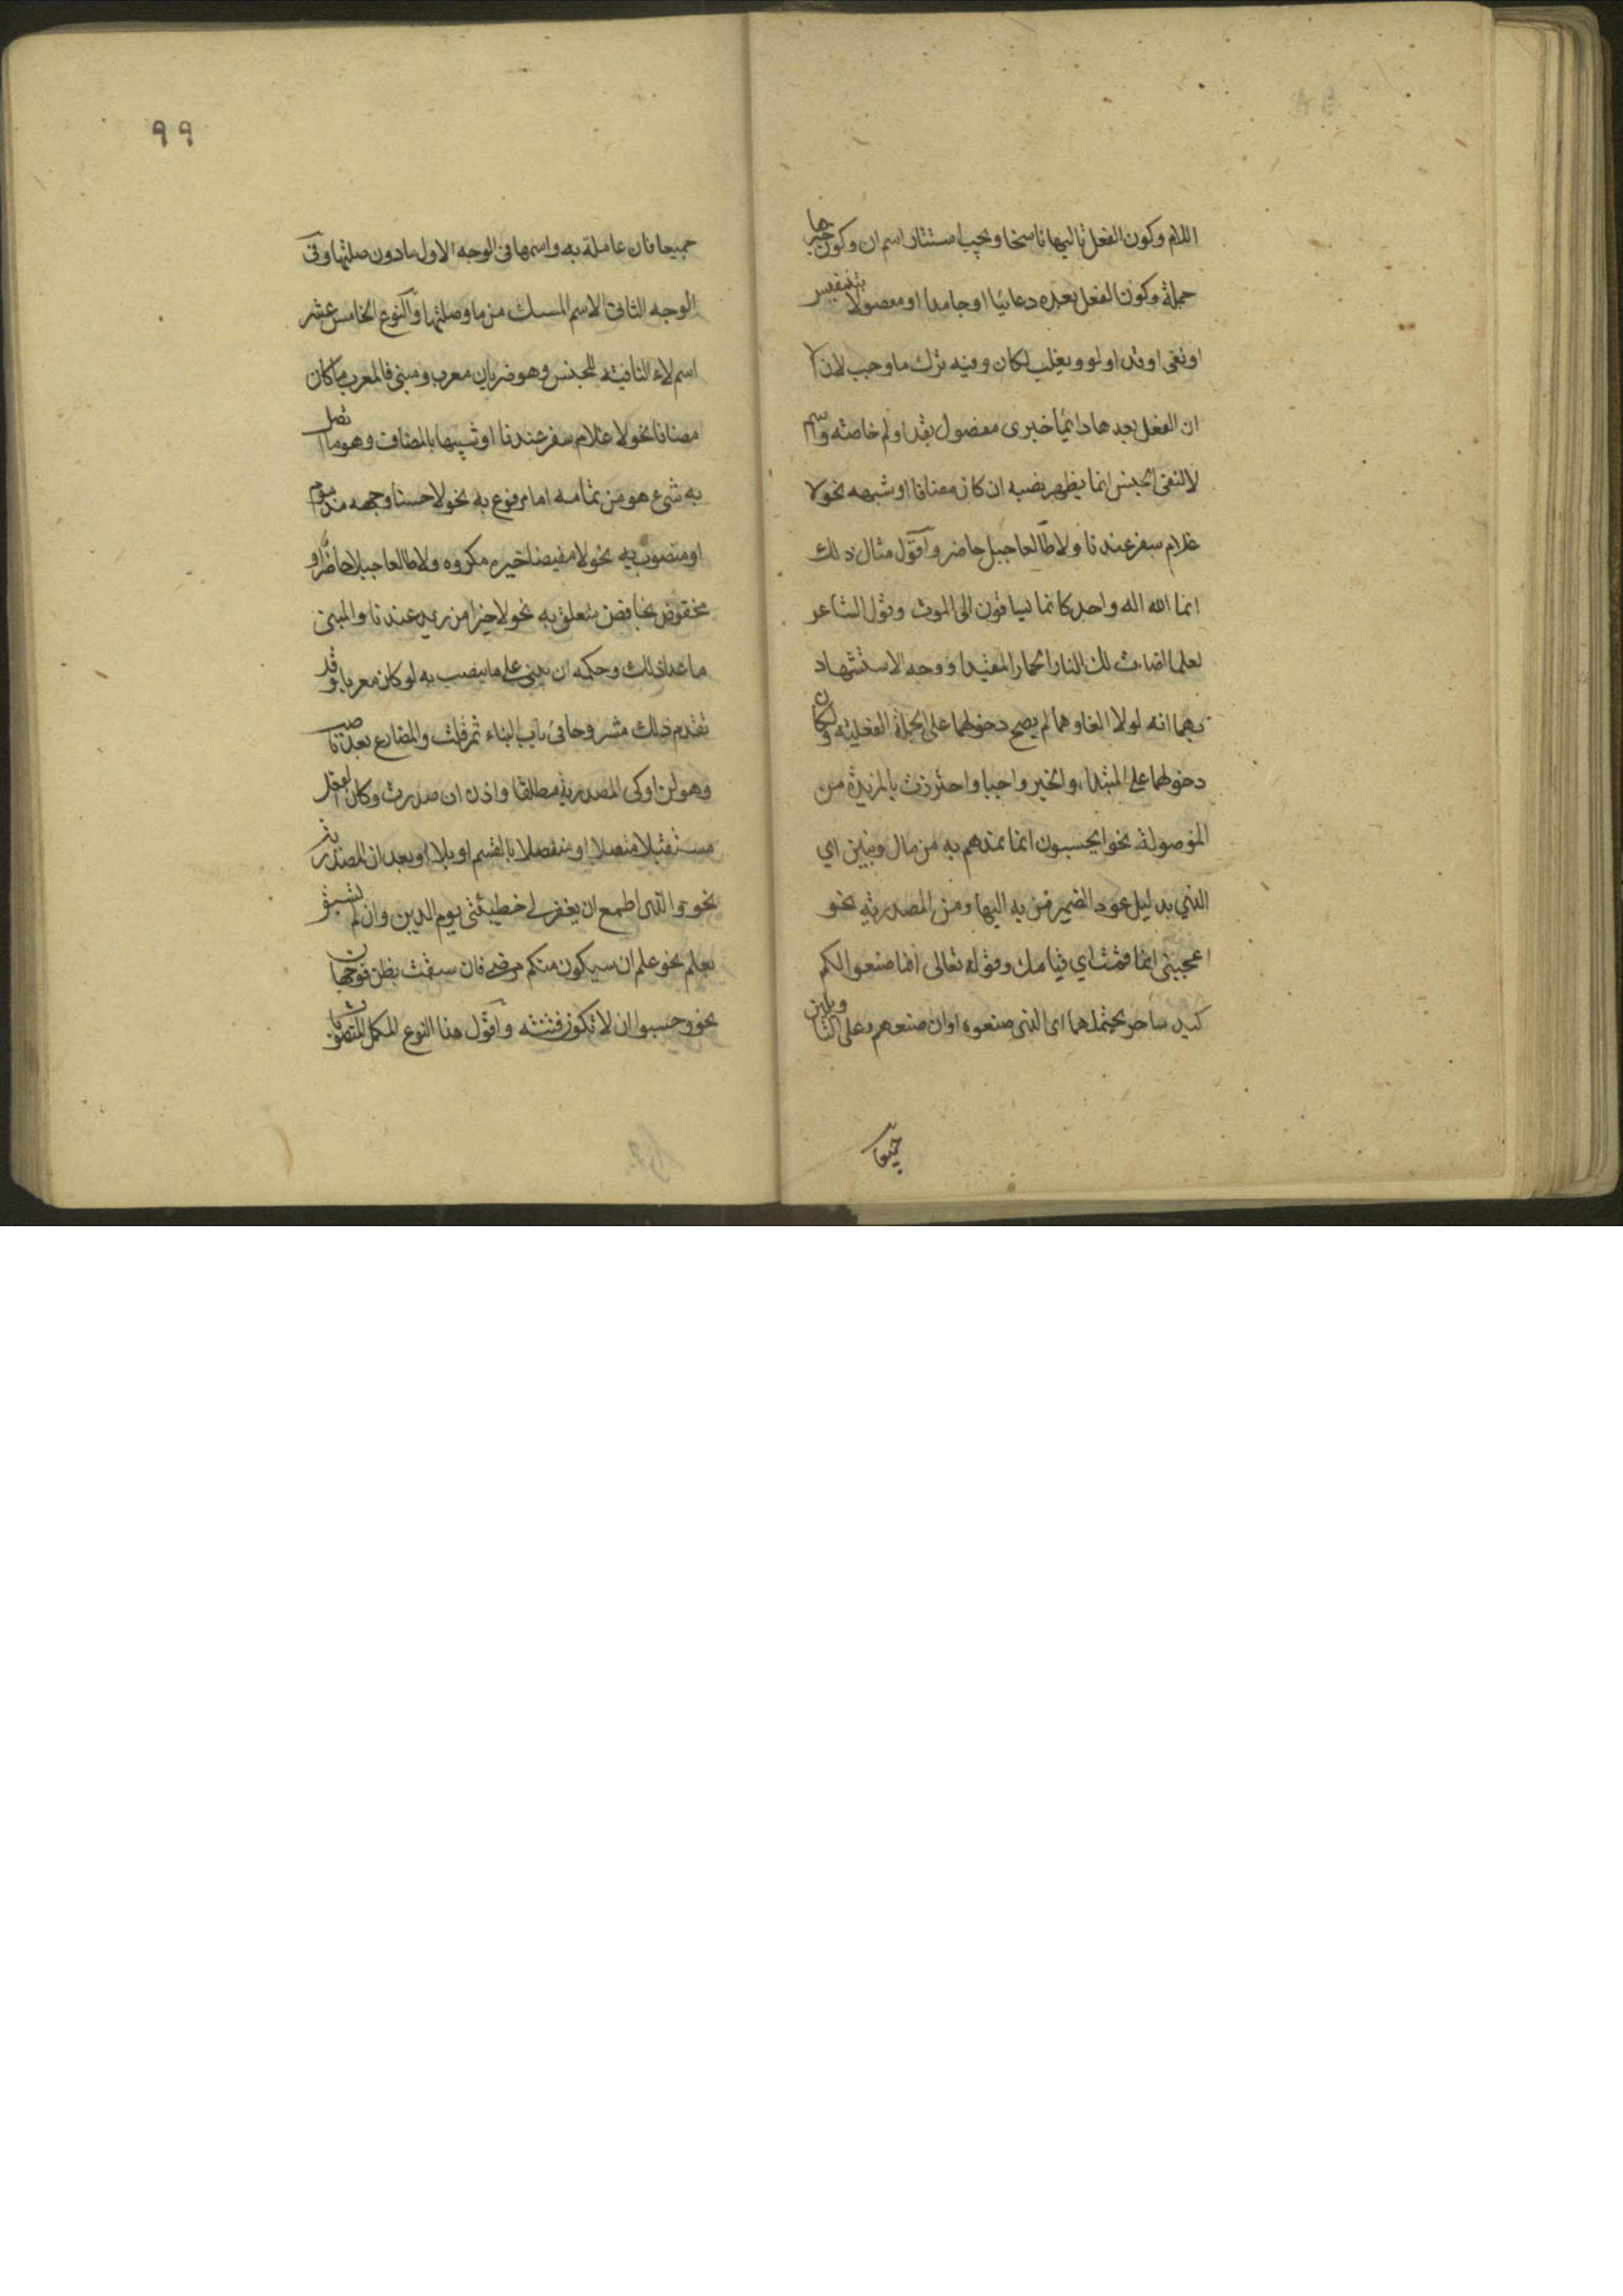 اللام وكون الفعل تاليها ناسخا ويجب استتار اسم ان وكون خبرها
جملة وكون الفعل بعده دعائيا او جامدا او مفصولا بتنفيس
او نفى او قد او لو ويغلب لكان وفيه ترك ما وجب لان
ان الفعل بعدها دائما خبرى مفصول بقد او لم خاصته واسم
لا لنفى الجنس انما يظهر نصبه ان كان مضافا او شبهه نحو لا
غلام سفر عندنا ولا طالعا جبل حاضر واقول مثال ذلك
انما الله اله واحد كانما يساقون الى الموت وقول الشاعر
لعلما اضاءت لك النار الحمار المقيدا ووجه الاستشهاد
بهما انه لولا الغاوهما لم يصح دخولهما على الجملة الفعليته ولكان
دخولهما على المبتدا والخبر واجبا واحترزت بالمزيدة من
الموصولة نحو ايحسبون انما نمدهم به من مال وبنين اي
الذي بدليل عود الضمير من به اليها ومن المصدرية نحو
اعجبنى انما قمت اي قيامك وقوله تعالى انما صنعوا لكم
كيد ساحر يحتملهما اى الذى صنعوه او ان صنعهم وعلى التاويلين
جميعا
٩٩
جميعا فان عاملة به واسمها فى الوجه الاول ما دون صلتها وفى
الوجه الثانى الاسم المسبك من ما وصلتها والنوع الخامس عشر
اسم لاء النافيته للجنس وهو ضربان معرب ومبنى فالمعرب ما كان
مضافا نحو لا غلام سفر عندنا او شبيها بالمضاف وهو ما اتصل
به شىء هو من تمامه اما مرفوع به نحو لا حسنا وجهه مذموم
او منصوب به نحو لا مفيضا خيره مكروه ولا طالعا جبلا حاضر او
مخفوض بخافض متعلق به نحو لا خيرا من زيد عندنا والمبنى
ما عدا ذلك وحكمه ان يبنى على ما ينصب به لو كان معربا وقد
تقدم ذلك مشروحا فى باب البناء ثم قلت والمضارع بعد ناصب
وهو لن او كى المصدرية مطلقا واذن ان صدرت وكان الفعل
مستقبلا متصلا او منفصلا بالقسم او بلا او بعد ان المصدرية
نحو والذى اطمع ان يغفر لى خطيئتى يوم الدين وان لم تسبق
بعلم نحو علم ان سيكون منكم مرضى فان سبقت بظن فوجهان
نحو وحسبوا ان لا تكون فتنته واقول هذا النوع المكمل للمنصوبات